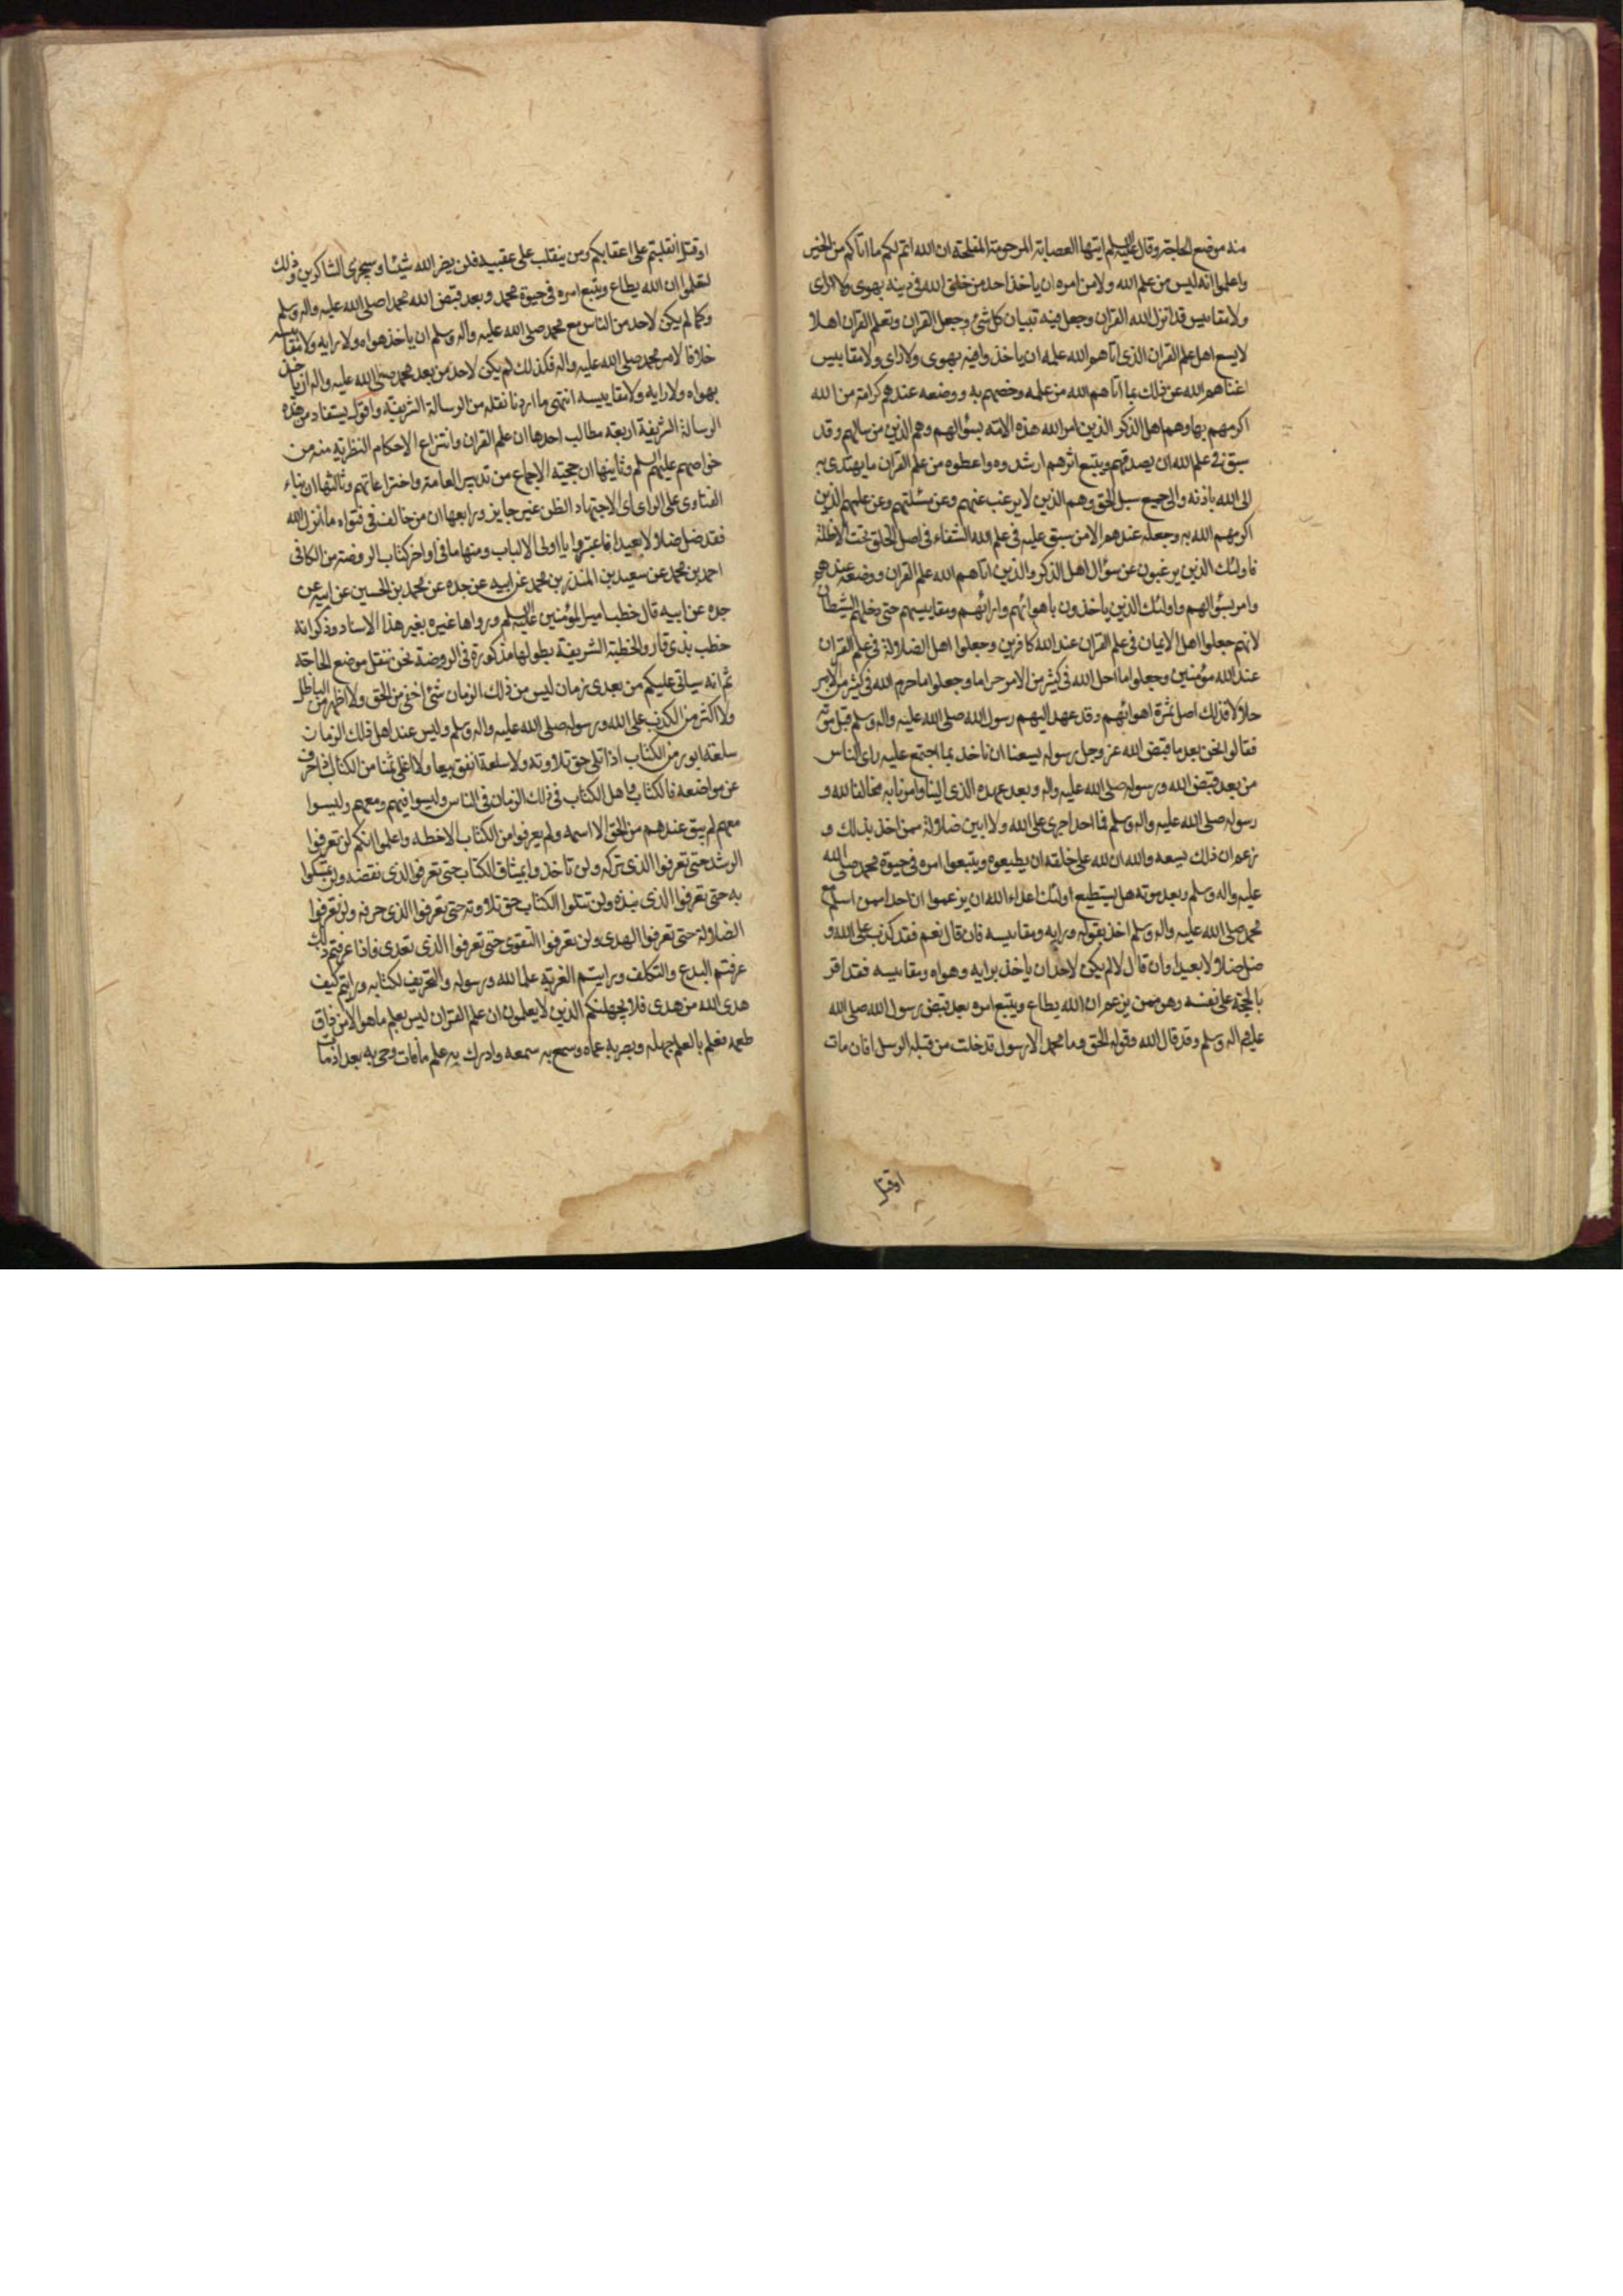 منه موضع الحاجة وقال عليه السلم ايتها العصابة المرحومة المفلحة ان الله اتم لكم ما اتاكم من الخير
واعلموا انه ليس من علم الله ولا من امره ان ياخذ احد من خلق الله فى دينه بهوى ولا راى
ولا مقاييس قد انزل الله القران وجعل فيه تبيان كل شئ وجعل القران وتعلم القران اهلا
لا يسع اهل علم القران الذى اتاهم الله علمه ان ياخذوا فيه بهوى ولا راى ولا مقاييس
اغناهم الله عن ذلك بما اتاهم الله من علمه وخصهم به ووضعه عندهم كرامة من الله
اكرمهم بها وهم اهل الذكر الذين امر الله هذه الامة بسؤالهم وهم الذين من سالهم وقد
سبق فى علم الله ان يصدقهم ويتبع اثرهم ارشدوه واعطوه من علم القران ما يهتدى به
الى الله باذنه والى جميع سبل الحق وهم الذين لا يرغب عنهم وعن مسئلتهم وعن علمهم الذين
اكرمهم الله به وجعله عندهم الا من سبق عليه فى علم الله الشقاء فى اصل الخلق تحت الاظلة
فاولئك الذين يرغبون عن سؤال اهل الذكر والذين اتاهم الله علم القران ووضعه عندهم
وامر بسؤالهم واولئك الذين ياخذون باهوائهم وارائهم ومقاييسهم حتى دخلهم الشيطان
لانهم جعلوا اهل الايمان فى علم القران عند الله كافرين وجعلوا اهل الضلالة فى علم القران
عند الله مؤمنين وجعلوا ما احل الله فى كثير من الامر حراما وجعلوا ما حرم الله فى كثير من الامر
حلالا فذلك اصل ثمرة اهوائهم وقد عهد اليهم رسول الله صلى الله عليه واله وسلم قبل موته
فقالوا نحن بعد ما قبض الله عز وجل رسوله يسعنا ان ناخذ بما اجتمع عليه راى الناس
من بعد قبض الله ورسوله صلى الله عليه واله وبعد عهده الذى الينا وامرنا به مخالفا لله و
رسوله صلى الله عليه واله وسلم فما احد اجرى على الله ولا ابين ضلالة ممن اخذ بذلك و
زعم ان ذلك يسعه والله ان لله على خلقه ان يطيعوه ويتبعوا امره فى حيوة محمد صلى الله
عليه واله وسلم وبعد موته هل يستطيع اولئك اعداء الله ان يزعموا ان احدا ممن اسلم مع
محمد صلى الله عليه واله وسلم اخذ بقوله ورايه ومقاييسه فان قال نعم فقد كذب على الله و
ضل ضلالا بعيدا وان قال لا لم يكن لاحد ان ياخذ برايه وهواه ومقاييسه فقد اقر
بالحجة على نفسه وهو ممن يزعم ان الله يطاع ويتبع امره بعد قبض رسول الله صلى الله
عليه واله وسلم وقد قال الله وقوله الحق وما محمد الا رسول قد خلت من قبله الرسل افان مات
اوقتل
اوقتل انقلبتم على اعقابكم ومن ينقلب على عقبيه فلن يضر الله شيئا وسيجزى الشاكرين وذلك
لتعلموا ان الله يطاع ويتبع امره فى حيوة محمد وبعد قبض الله محمدا صلى الله عليه واله وسلم
وكما لم يكن لاحد من الناس مع محمد صلى الله عليه واله وسلم ان ياخذ هواه ولا رايه ولا مقاييسه
خلافا لامر محمد صلى الله عليه واله فكذلك لم يكن لاحد من بعد محمد صلى الله عليه واله ان ياخذ
بهواه ولا رايه ولا مقاييسه انتهى ما اردنا نقله من الرسالة الشريفة واقول يستفاد من هذه
الرسالة الشريفة اربعة مطالب احدها ان علم القران وانتزاع الاحكام النظرية منه من
خواصهم عليهم السلم وثانيها ان حجية الاجماع من تدابير العامة واختراعاتهم وثالثها ان بناء
الفتاوى على الراى اى الاجتهاد الظن غير جايز ورابعها ان من خالف فى فتواه ما انزل الله
فقد ضل ضلالا بعيدا فاعتبروا يا اولى الالباب ومنها ما فى اواخر كتاب الروضة من الكافى
احمد بن محمد عن سعيد بن المنذر بن محمد عن ابيه عن جده عن محمد بن الحسين عن ابيه عن
جده عن ابيه قال خطب امير المؤمنين عليه السلم ورواها غيره بغير هذا الاسناد وذكر انه
خطب بذى قار والخطبة الشريفة بطولها مذكورة فى الروضة نحن ننقل موضع الحاجة
ثم انه سياتى عليكم من بعدى زمان ليس من ذلك الزمان شئ اخفى من الحق ولا اظهر من الباطل
ولا اكثر من الكذب على الله ورسوله صلى الله عليه واله وسلم وليس عند اهل ذلك الزمان
سلعة ابور من الكتاب اذا تلى حق تلاوته ولا سلعة انفق بيعا ولا اغلى ثمنا من الكتاب اذا حرف
عن مواضعه فالكتاب واهل الكتاب فى ذلك الزمان فى الناس وليسوا فيهم ومعهم وليسوا
معهم لم يبق عندهم من الحق الا اسمه ولم يعرفوا من الكتاب الا خطه واعلموا انكم لن تعرفوا
الرشد حتى تعرفوا الذى تركه ولن تاخذوا بميثاق الكتاب حتى تعرفوا الذى نقضه ولن تمسكوا
به حتى تعرفوا الذى نبذه ولن تتلوا الكتاب حق تلاوته حتى تعرفوا الذى حرفه ولن تعرفوا
الضلالة حتى تعرفوا الهدى ولن تعرفوا التقوى حتى تعرفوا الذى تعدى فاذا عرفتم ذلك
عرفتم البدع والتكلف ورايتم الفرية على الله ورسوله والتحريف لكتابه ورايتم كيف
هدى الله من هدى فلا يجهلنكم الذين لا يعلمون ان علم القران ليس يعلم ما هو الا من ذاق
طعمه فعلم بالعلم جهله وبصر به عماه وسمع به سمعه وادرك به علم ما فات وحى به بعد اذ مات